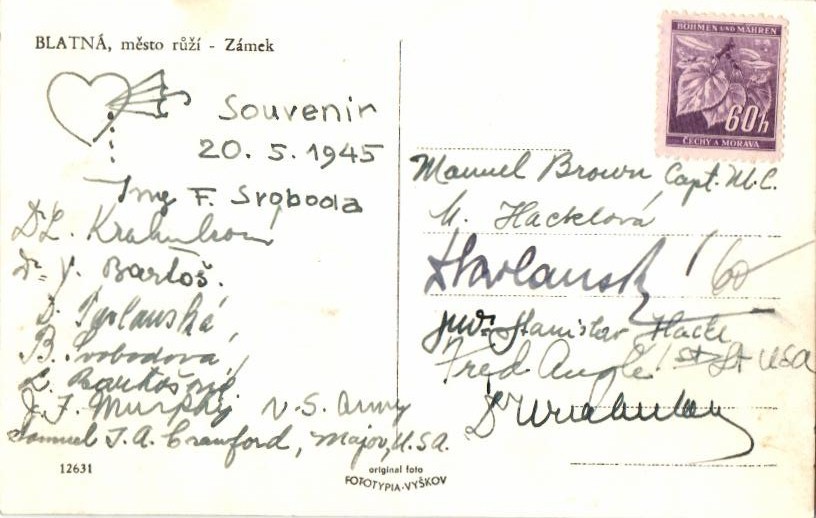 BLATNÁ, město růží - Zámek
Souvenir
20. 5. 1945
Ing F. Svoboda
Dr L.
Dr J. Bartoš.
B. Svobodová
L. Bartošová
J. F. Murphy U.S. Army
Samuel T. A. Crawford, Major, U.S.A.
12631
original foto
FOTOTYPIA-VYŠKOV
BÖHMEN UND MÄHREN
60h
ČECHY A MORAVA
Manuel Brown Capt. M.C.
M. Hacklová
JUDr Stanislav Hackl
Fred Angle 1st Lt USA
Dr